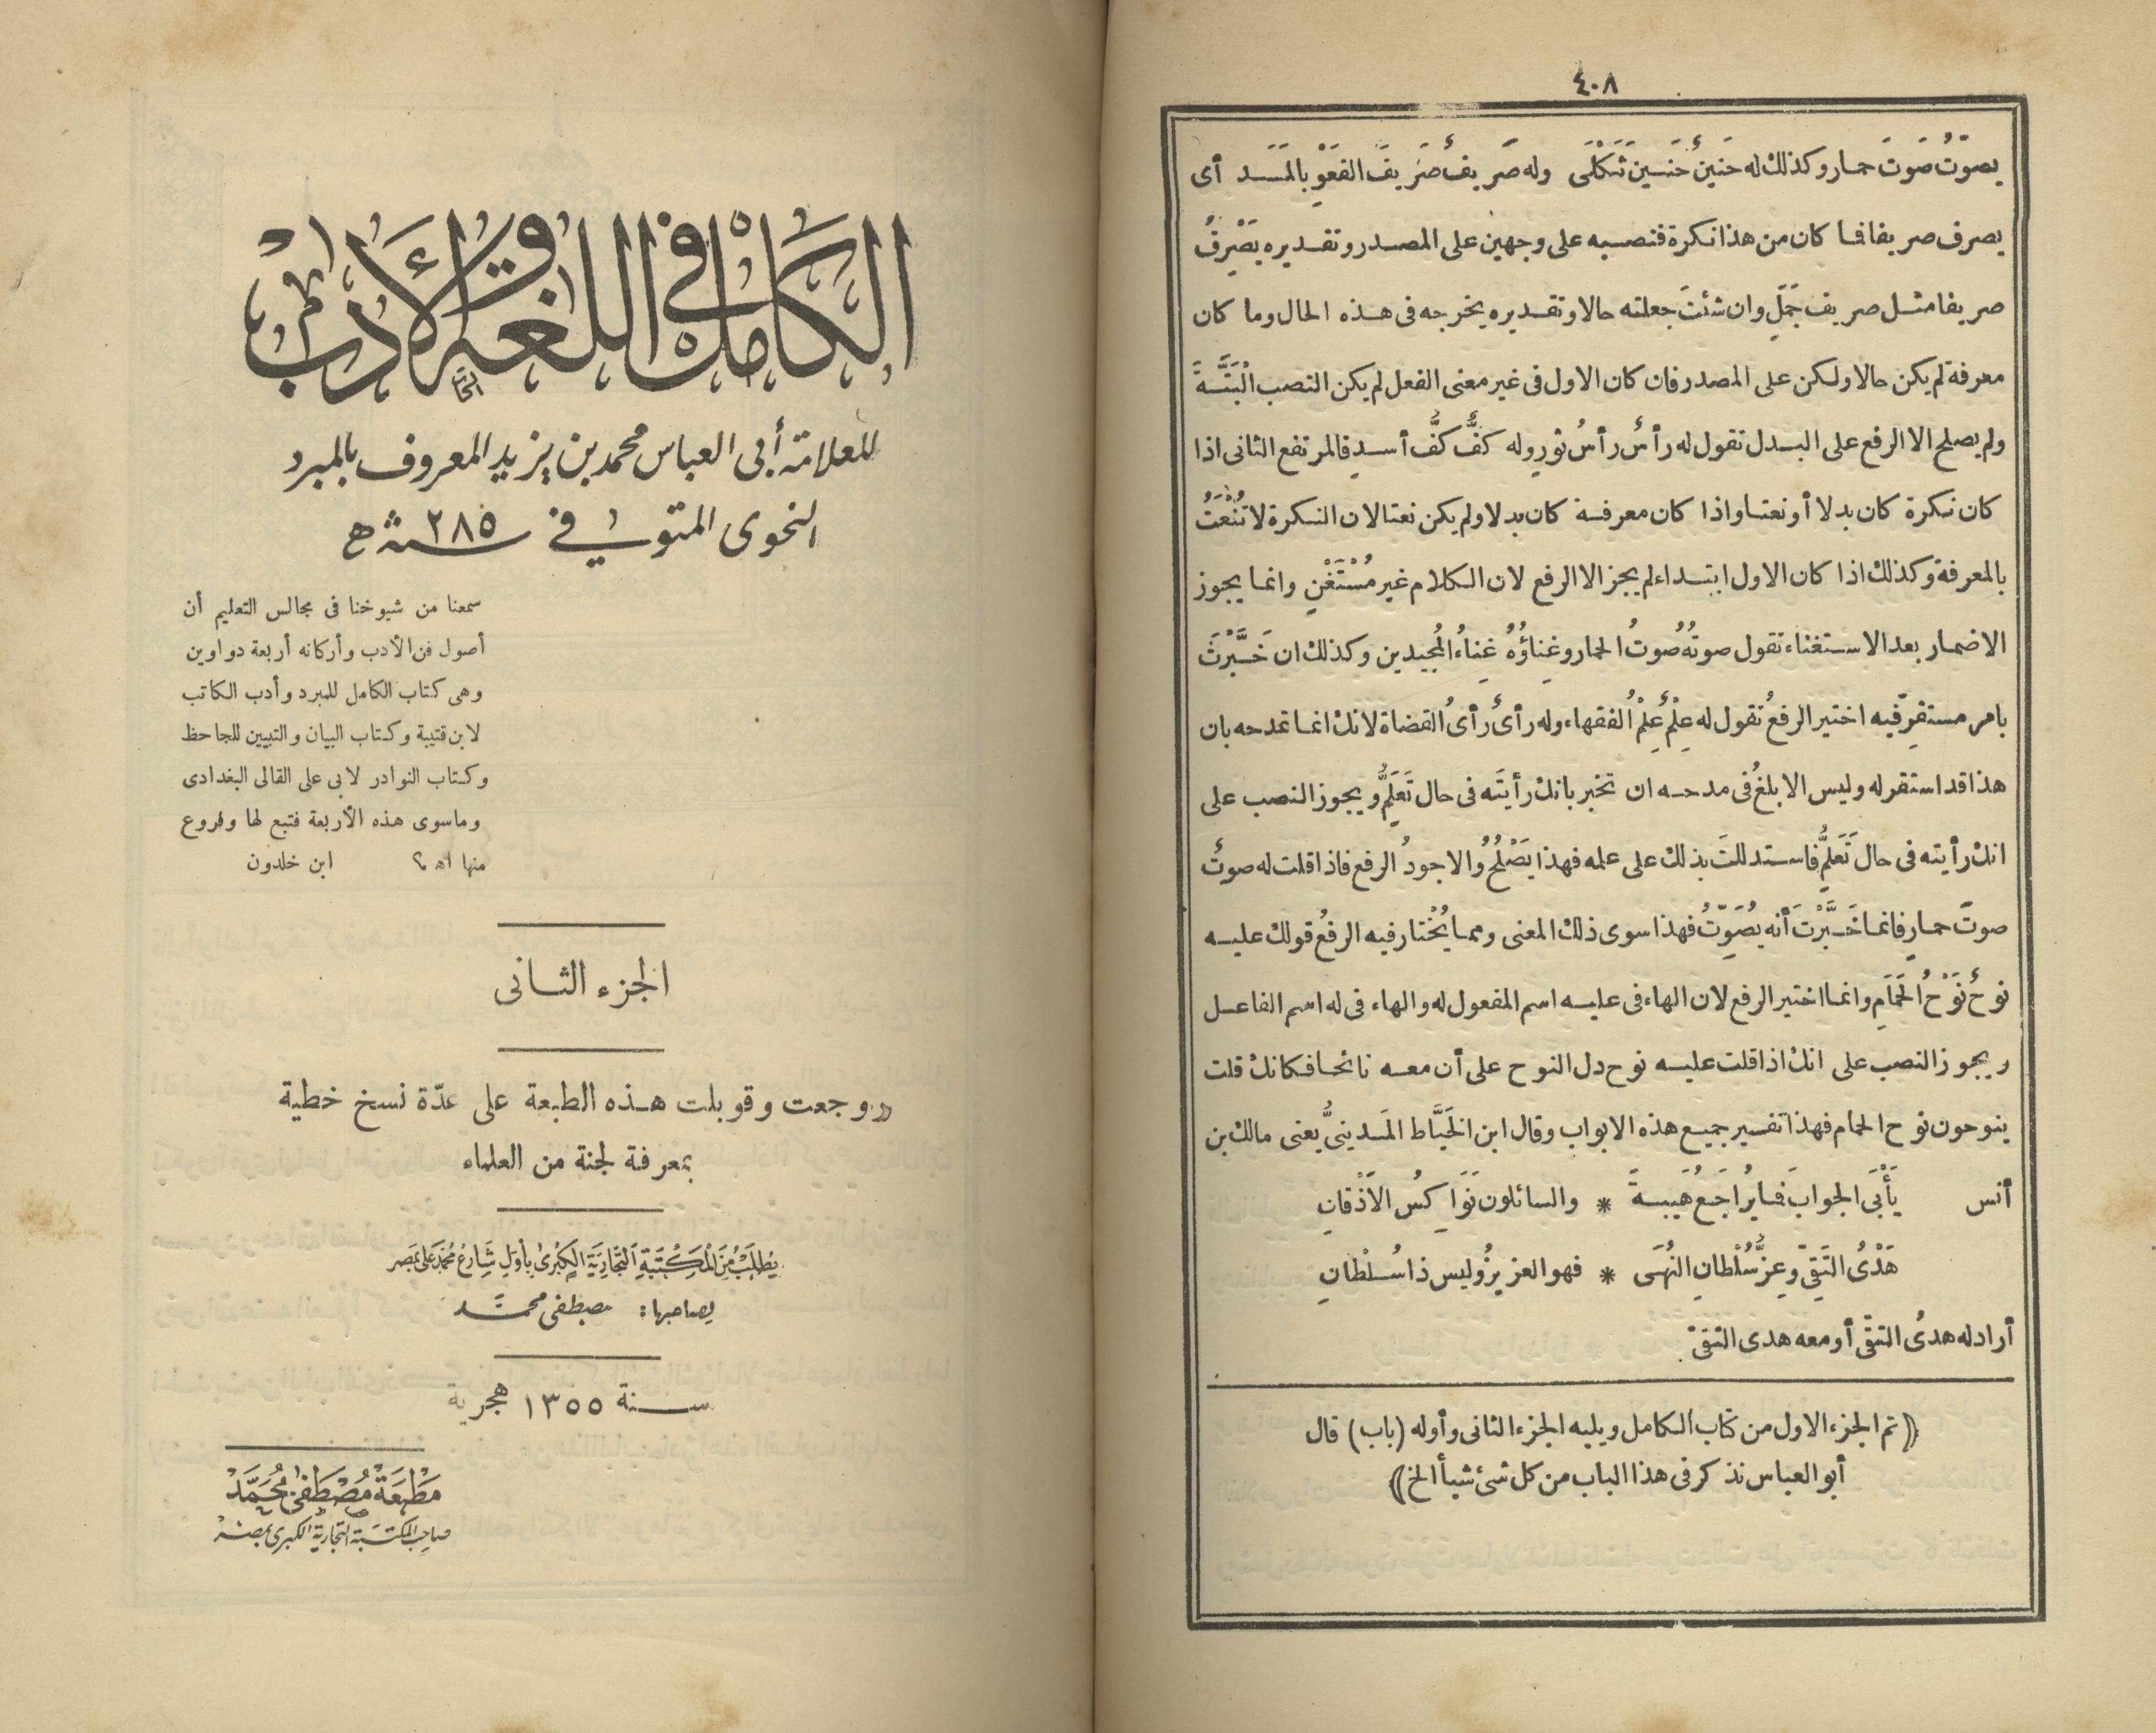 ٤٠٨
يصوّتُ صَوتَ حمار وكذلك له حَنينٌ حَنـين ثَكْلَى وله صَريفٌ صَريفَ القَعْوِ بالمَسَد أى
يصرف صريفا فما كان من هذا نكرة فنصبه على وجهين على المصدر وتقديره يَصْرِفُ
صريفا مثل صريف جَمَلٍ وان شئتَ جعلته حالا وتقديره يخرجه فى هذه الحال وما كان
معرفة لم يكن حالا ولكن على المصدر فان كان الاول فى غير معنى الفعل لم يكن النصب الْبَتَّةَ
ولم يصلح الا الرفع على البدل تقول له رأسٌ رأسُ ثورٍ وله كفٌّ كفُّ أسدٍ فالمرتفع الثانى اذا
كان نكرة كان بدلا أو نعتا واذا كان معرفة كان بدلا ولم يكن نعتا لان النكرة لا تُنْعَتُ
بالمعرفة وكذلك اذا كان الاول ابتداء لم يجز الا الرفع لان الكلام غير مُسْتَغْنٍ وانما يجوز
الاضمار بعد الاستغناء تقول صوتُه صوتُ الحمار وغِناؤُهُ غِناءُ المُجيدين وكذلك ان خَبَّرْتَ
بامر مستقِرّ فيه اختير الرفعُ تقول له عِلْمٌ عِلْمُ الفقهاء وله رأىٌ رأىُ القضاة لانك انما تمدحه بان
هذا قد استقر له وليس الابلغُ فى مدحه ان تخبر بانك رأيتَه فى حال تَعَلُّمٍ ويجوز النصب على
انك رأيته فى حال تَعَلُّمٍ فاستدللتَ بذلك على علمه فهذا يَصْلُحُ والاجودُ الرفع فاذا قلت له صوتٌ
صوتَ حمارٍ فانما خَبَّرْتَ أنه يُصَوِّتُ فهذا سوى ذلك المعنى ومما يُخْتار فيه الرفعُ قولك عليه
نوحٌ نَوْحُ الحَمَامِ وانما اختير الرفع لان الهاء فى عليه اسم المفعول له والهاء فى له اسم الفاعل
ويجوز النصب على انك اذا قلت عليه نوح دل النوح على أن معه نائحا فكانك قلت
ينوحون نوح الحمام فهذا تفسير جميع هذه الابواب وقال ابن الخَيَّاط المَدينىُّ يعنى مالك بن
أنس يَأْبَى الجوابَ فما يُراجَعُ هَيبةً * والسائلون نَوَاكسُ الأَذْقانِ
هَدْىُ التَقِىِّ وعِزُّ سُلْطانِ النُّهَى * فهو العزيزُ وليس ذا سُلْطانِ
أراد له هدىُ التقىّ أو معه هدى التقىّ
﴿تم الجزء الاول من كتاب الكامل ويليه الجزء الثانى وأوله (باب) قال
أبو العباس نذكر فى هذا الباب من كل شئ شيأ الخ﴾
الكامل فى اللغة والأدب
للعلامة أبى العباس محمد بن يزيد المعروف بالمبرد
النحوى المتوفى فى سنة ٢٨٥ هـ
سمعنا من شيوخنا فى مجالس التعليم أن
أصول فن الأدب وأركانه أربعة دواوين
وهى كتاب الكامل للمبرد وأدب الكاتب
لابن قتيبة وكتاب البيان والتبيين للجاحظ
وكتاب النوادر لابى على القالى البغدادى
وما سوى هذه الأربعة فتبع لها وفروع
منها اه ابن خلدون
الجزء الثانى
روجعت وقوبلت هذه الطبعة على عدّة نسخ خطية
بمعرفة لجنة من العلماء
يُطْلَبُ مِنَ الْمَكْتَبَةِ التِّجَارِيَّةِ الْكُبْرَى بِأَوَّلِ شَارِعِ مُحَمَّد عَلِى بِمَصر
لصاحبها: مصطفى محمَّد
سنة ١٣٥٥ هجرية
مَطْبَعَة مُصْطَفَى مُحَمَّد
صاحب المكتبة التجارية الكبرى بمصر